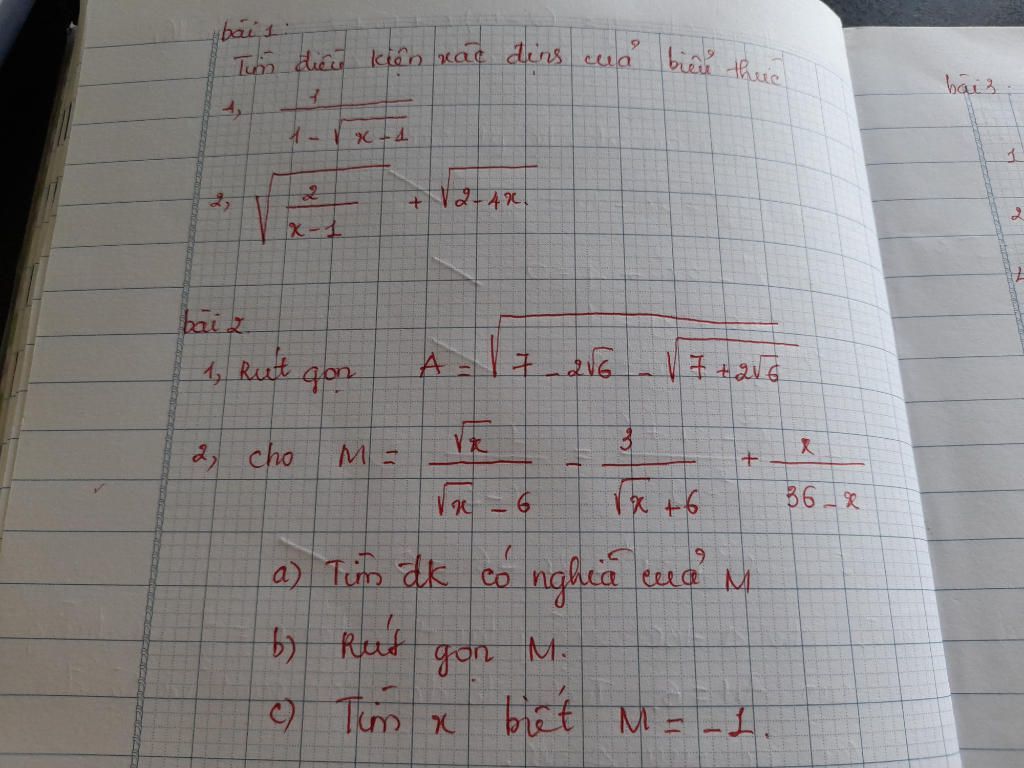 bài 1:
Tìm điều kiện xác định của biểu thức
1, 1 / (1 - √(x-1))
2, √(2/(x-1)) + √(2-4x).
bài 2
1, Rút gọn A = √(7 - 2√6 - √(7 + 2√6))
2, cho M = √x / (√x - 6) - 3 / (√x + 6) + x / (36 - x)
a) Tìm đk có nghĩa của M
b) Rút gọn M.
c) Tìm x biết M = -1.
bài 3:
1
2